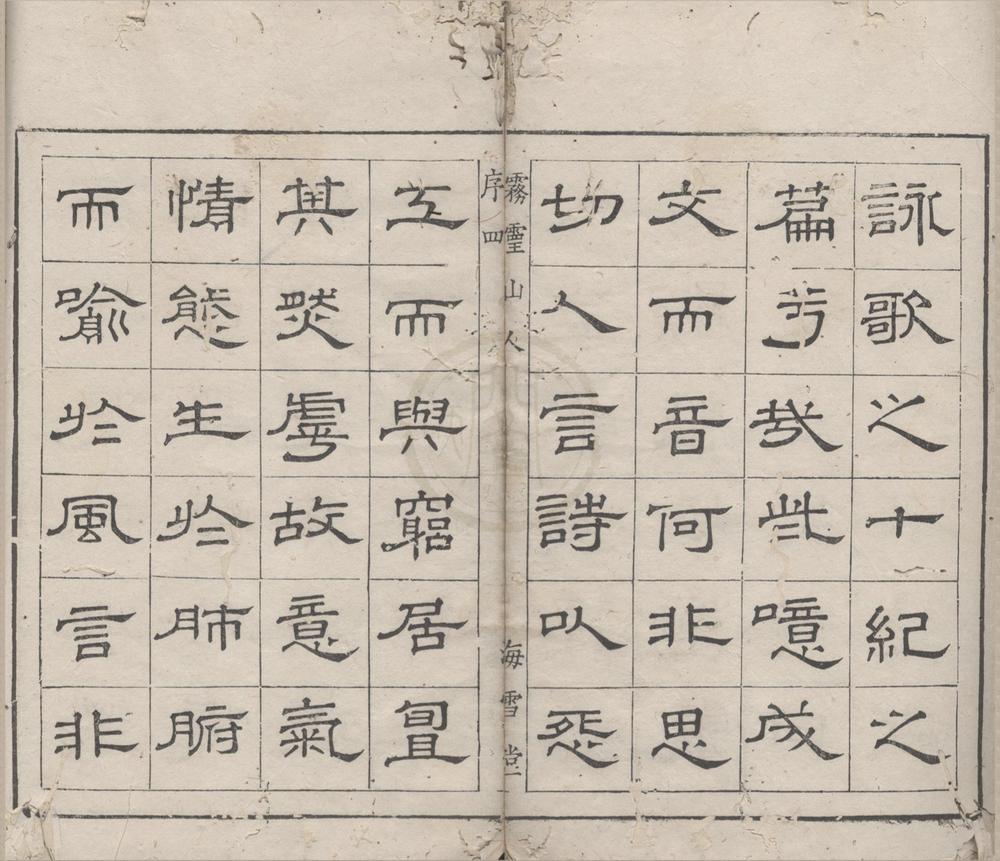 詠歌之十紀之
篇兮哉些噫成
文而音何非思
切人言詩以怨
霧靈山人
序 四
海雪堂
工而與窮居宜
其然虖故意氣
情態生於肺腑
而喻於風言非